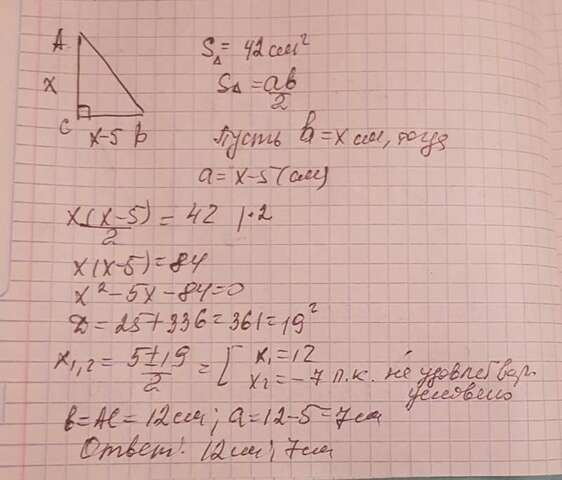 A
x
C
x-5 B
S△ = 42 см²
S△ = ab/2
Пусть b = x см, тогда
a = x-5 (см)
x(x-5)/2 = 42 |·2
x(x-5) = 84
x²-5x-84=0
D = 25+336=361=19²
x₁,₂ = (5±19)/2 = [ x₁=12
x₂=-7 п.к. не удовлетвор.
условию
b=AC=12см; a=12-5=7см
Ответ: 12см; 7см